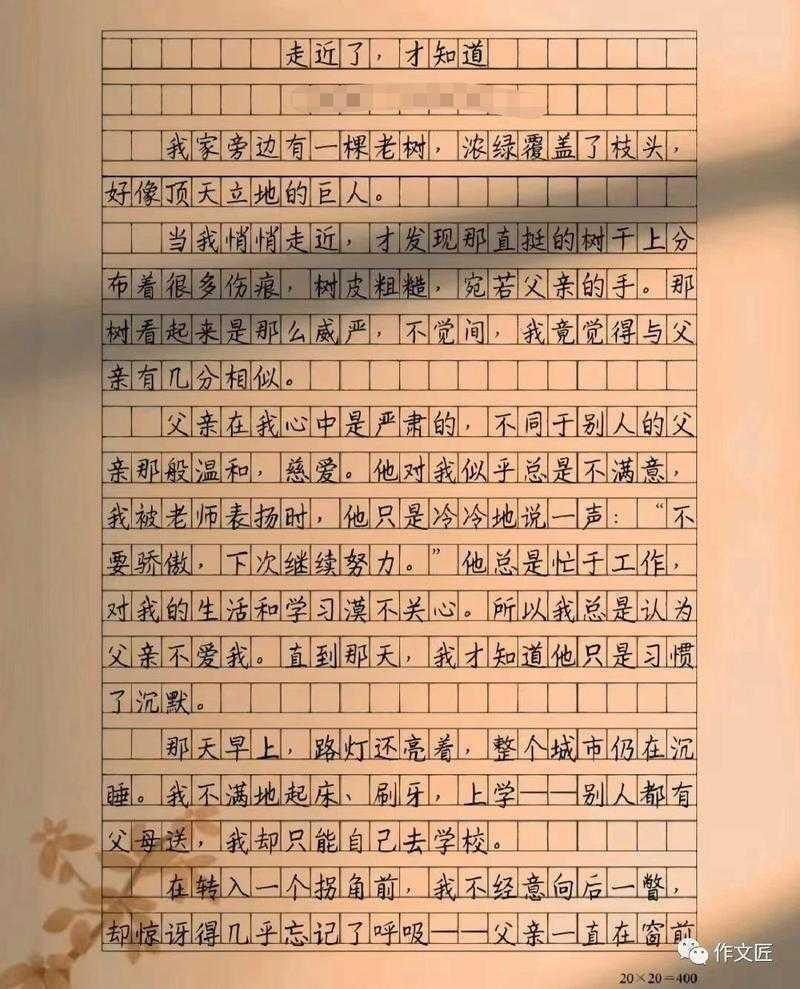 走近了，才知道
我家旁边有一棵老树，浓绿覆盖了枝头，
好像顶天立地的巨人。
当我悄悄走近，才发现那直挺的树干上分
布着很多伤痕，树皮粗糙，宛若父亲的手。那
树看起来是那么威严，不觉间，我竟觉得与父
亲有几分相似。
父亲在我心中是严肃的，不同于别人的父
亲那般温和，慈爱。他对我似乎总是不满意，
我被老师表扬时，他只是冷冷地说一声：“不
要骄傲，下次继续努力。”他总是忙于工作，
对我的生活和学习漠不关心。所以我总是认为
父亲不爱我。直到那天，我才知道他只是习惯
了沉默。
那天早上，路灯还亮着，整个城市仍在沉
睡。我不满地起床、刷牙，上学——别人都有
父母送，我却只能自己去学校。
在转入一个拐角前，我不经意向后一瞥，
却惊讶得几乎忘记了呼吸——父亲一直在窗前
作文匠
20×20=400